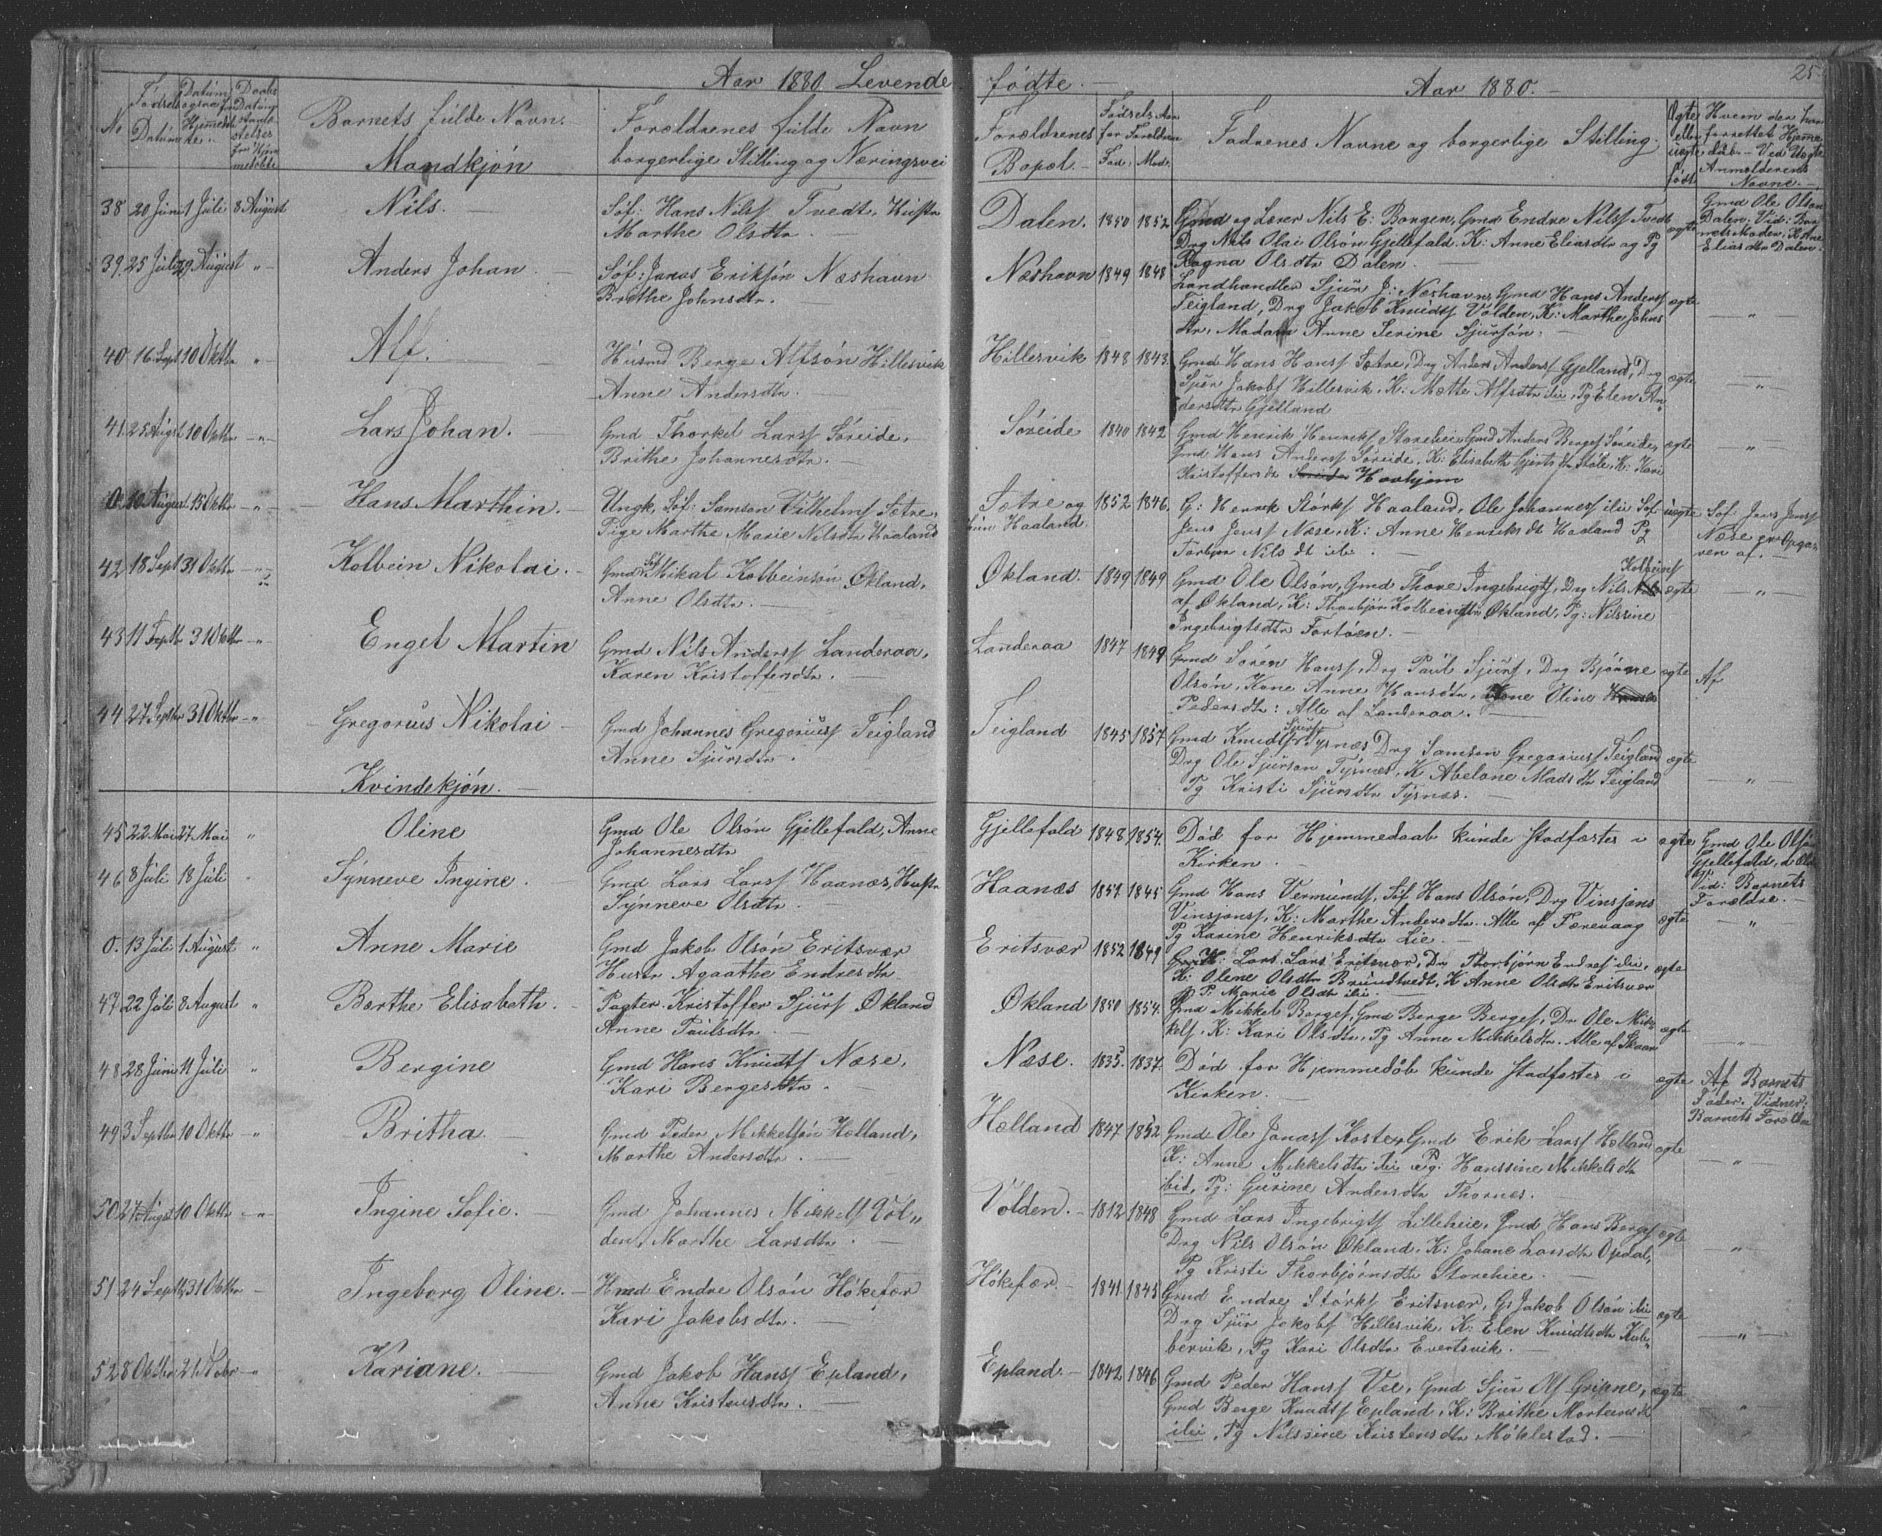 Aar 1880. Levende fødte. Aar 1880. 25.
No
Fødsels Datum
Barnets fulde Navn.
Mandkjøn
Forældrenes fulde Navn
borgerlige Stilling og Næringsvei
Forældrenes
Bopæl
Fødsels Aar
for Forældrene
Fad. Mod.
Fadrenes Navne og borgerlige Stilling.
Ægte
eller
uægte
født
Hvem der har
forrettet Hjemme
daab. Ved Uægte
Anmelderens
Navne.
38 20 Juni 1 Juli 8 August Nils. Søf: Hans Nilsf Tvedt, Hustr
Marthe Olsdtr.
Dalen. 1850 1852 Gmd og Lærer Nils E. Borgen, Gmd Endre Nilsf Tvedt
Drg Nils Olai Olsøn Gjellefald. K: Anne Eliasdtr og Pg
Ragna Olsdtr Dalen.
ægte
Gmd Ole Olsøn
Dalen. Vid: Bar
nets Moder, K. Anne
Eliasdtr Dalen.
39. 25 Juli 29 August " Anders Johan Søf: Jonas Eriksøn Næshavn
Brithe Johnsdtr.
Næshavn 1849 1848 Landhandler Sjur J. Næshavn, Gmd Hans Andersf
Teigland, Drg Jakob Knudsf Volden, K: Marthe Johns
dtr, Madam Anne Serine Sjursøn.
ægte "
40 16 Sept 10 Oktbr " Alf. Husmd Berge Alfsøn Hillesvik
Anne Andersdtr.
Hillesvik 1848 1843. Gmd Hans Hansf Sætre, Drg Anders Andersf Gjelland, Drg
Sjur Jakobsf Hillesvik, K: Mætte Alfsdtr ibi, Pg Elen An
dersdtr Gjelland
ægte "
41 25 Augst 10 Oktbr " Lars Johan. Gmd Thorkel Larsf Søreide,
Brithe Johannesdtr.
Søreide 1840 1842 Gmd Henrik Henriksf Storehei, Gmd Anders Bergesf Søreide,
Gmd Hans Andersf Søreide, K: Elisabeth Gjertsdtr Stole, K: Kari
Kristoffersdtr Hovhjem
ægte "
0. 10 August 15 Oktbr " Hans Marthin. Ungk, Søf: Samson Vilhelmsf Sætre,
Pige Marthe Marie Nilsdtr Haaland
Sætre og
hun Haaland
1852 1846. G: Henrik Størksf Haaland, Ole Johannesf ibi Søf.
Jens Jensf Næse, K: Anne Henriksdt Haaland Pg
Torbjør Nilsdt ibi.
uægte
Søf. Jens Jensf
Næse
42 18 Sept 31 Oktbr " Kolbein Nikolai. Gmds Søf Mikal Kolbeinsøn Økland,
Anne Olsdtr.
Økland. 1849 1849 Gmd Ole Olsøn, Gmd Thore Ingebrigtsf, Drg Nils Kolbeinsf
af Økland, K: Thorbjør Kolbeinsdtr Økland, Pg: Nilssine
Ingebrigtsdtr Fortøen.
ægte "
43 11 Septbr 31 Oktbr " Engel Martin Gmd Nils Andersf Landeraa,
Karen Kristoffersdtr.
Landeraa 1847 1849 Gmd Søren Hansf, Drg Paul Sjursf, Drg Bjørne
Olsøn, Kone Anne Hansdtr, Kone Oline
Pedersdtr: Alle af Landeraa.
ægte Af
44 27 Septbr 31 Oktbr " Gregorius Nikolai Gmd Johannes Gregoriusf Teigland
Anne Sjursdtr.
Teigland 1845 1857 Gmd Knud Sjursf Tysnæs Drg Samson Gregoriusf Teigland
Drg Ole Sjursøn Tysnæs, K Abelone Madsdtr Teigland
Pg Kristi Sjursdtr Tysnæs.
ægte "
Kvindekjøn.
45 22 Mai 27 Mai " Oline Gmd Ole Olsøn Gjellefald, Anne
Johannesdtr
Gjellefald 1848 1854. Død før Hjemmedaab kunde stadfæstes i
Kirken.
ægte
Gmd Ole Olsøn
Gjellefald,
Vid: Barnets
Forældre.
46 8 Juli 18 Juli Synneve Ingine. Gmd Lars Larsf Haanæs, Hustr
Synneve Olsdtr.
Haanæs 1852 1845 Gmd Hans Vermundsf, Søf Hans Olsøn, Drg Vinsjans
Vinsjansf, K: Marthe Andersdtr. Alle af Færevaag
Pg Karine Henriksdtr Lie.
ægte "
0. 13 Juli 1 August " Anne Marie Gmd Jakob Olsøn Eritsvær
Hustr Agaathe Endresdtr
Eritsvær 1852 1849 Lars Larsf Eritsvær, Drg Thorbjørn Endresf ibi,
K: Olene Olsdtr Brundtvedt, K Anne Olsdtr Eritsvær
P. Marie Olsdtr ibi.
ægte
47 22 Juli 8 August " Barthe Elisabeth. Pagter Kristoffer Sjursf Økland
Anne Paulsdtr.
Økland 1850 1854. Gmd Mikkel Bergesf, Gmd Berge Bergesf, Dr Ole Mik
kelsf, K: Kari Olsdtr, Pg Anne Mikkelsdtr. Alle af Skaar
ægte "
48 28 Juni 11 Juli " Bergine Gmd Hans Knudsf Næse,
Kari Bergesdtr.
Næse. 1835 1837 Død før Hjemmedøb kunde stadfæstes i
Kirken.
ægte
Af Barnets
Fader. Vidner,
Barnets Forældre
49 3 Septbr 10 Oktbr " Britha. Gmd Peder Mikkelsøn Hølland,
Marthe Andersdtr.
Hølland 1847 1852 Gmd Ole Jonasf Koster, Gmd Erik Larsf Hølland
K: Anne Mikkelsdtr ibi Pg. Hanssine Mikkelsdtr
ibid, Pg: Gurine Andersdtr Thornes.
ægte "
50 27 August 10 Oktbr " Ingine Sofie. Gmd Johannes Mikkelsf Vol"
den, Marthe Larsdtr.
Volden. 1812 1848 Gmd Lars Ingebrigtsf Lilleheie, Gmd Hans Bergesf
Drg Nils Olsøn Økland. K: Johane Larsdtr Opdal,
Pg Kristi Thorbjørnsdtr Storeheie.
ægte "
51 24 Septbr 31 Oktbr Ingeborg Oline. Hmd Endre Olsøn Høkefær
Kari Jakobsdtr.
Høkefær. 1841 1845 Gmd Endre Størksf Eritsvær, G: Jakob Olsøn ibi
Drg Sjur Jakobsf Hillesvik. K: Elen Knudsdtr Kul"
bervik, Pg Kari Olsdtr Evertsvik.
ægte "
52 8 Oktbr " Kariane. Gmd Jakob Hansf Epland,
Anne Kristensdtr.
Epland. 1842 1846 Gmd Peder Hansf Vee, Gmd Sjur Olsf Gripne,
Gmd Berge Knudsf Epland, K: Brithe Mortensdt
ibi, Pg Nilssine Kristensdtr Møklestad.
ægte "